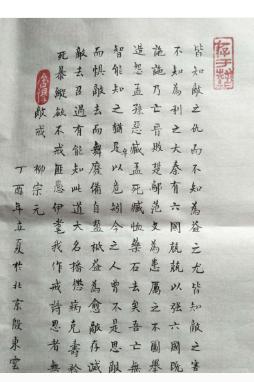 皆知敵之仇而不知為益之尤皆知敵之害
不知為利之大秦有六國兢兢以強六國既
訑訑乃亡晉敗楚鄢范文為患厲之不圖舉
造怨孟孫惡臧孟死臧恤藥石去矣吾亡無
智能知之猶卒以危矧今之人曾不是思敵
而懼敵去而舞廢備自盈祇益為愈敵存滅
敵去召過有能知此道大名播懲病克壽矜
死暴縱欲不戒匪愚伊耄我作戒詩思者無
敵戒 柳宗元
丁酉年立夏於北京殷東雲